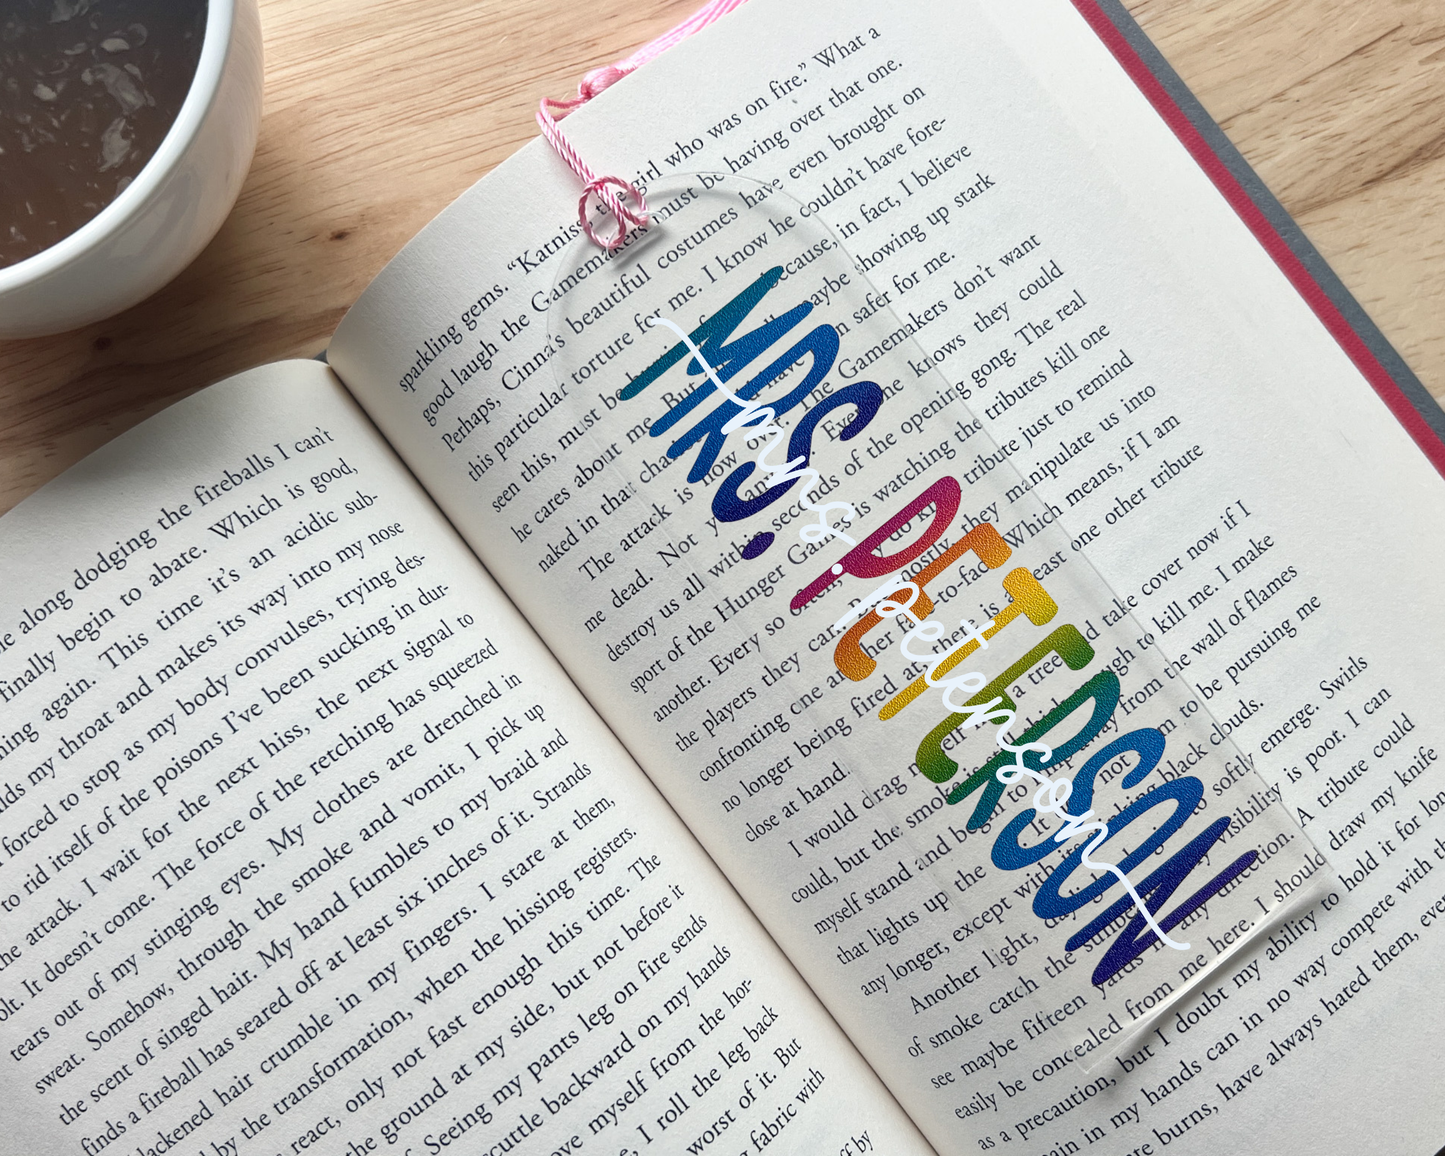 along dodging the fireballs I can't
finally begin to abate. Which is good,
again. This time it's an acidic sub-
my throat and makes its way into my nose
forced to stop as my body convulses, trying des-
to rid itself of the poisons I've been sucking in dur-
the attack. I wait for the next hiss, the next signal to
olt. It doesn't come. The force of the retching has squeezed
tears out of my stinging eyes. My clothes are drenched in
sweat. Somehow, through the smoke and vomit, I pick up
the scent of singed hair. My hand fumbles to my braid and
finds a fireball has seared off at least six inches of it. Strands
lackened hair crumble in my fingers. I stare at them,
by the transformation, when the hissing registers.
react, only not fast enough this time. The
the ground at my side, but not before it
Seeing my pants leg on fire sends
cuttle backward on my hands
ove myself from the hor-
, I roll the leg back
worst of it. But
fabric with
ff by
sparkling gems. “Katniss, the girl who was on fire.” What a
good laugh the Gamemakers must be having over that one.
Perhaps, Cinna's beautiful costumes have even brought on
this particular torture for me. I know he couldn't have fore-
seen this, must be because, in fact, I believe
he cares about me. But maybe showing up stark
naked in that chariot have been safer for me.
The attack is now over. The Gamemakers don't want
me dead. Not yet anyway. Everyone knows they could
destroy us all within seconds of the opening gong. The real
sport of the Hunger Games is watching the tributes kill one
another. Every so often, they do kill tribute just to remind
the players they can. mostly, they manipulate us into
confronting one another face-to-face. Which means, if I am
no longer being fired at, there is at least one other tribute
close at hand.
I would drag myself a tree and take cover now if I
could, but the smoke is still thick enough to kill me. I make
myself stand and begin to away from the wall of flames
that lights up the It not seem to be pursuing me
any longer, except with its stinking black clouds.
Another light, daylight, begins to softly emerge. Swirls
of smoke catch the sunbeams. My visibility is poor. I can
see maybe fifteen yards in any direction. A tribute could
easily be concealed from me here. I should draw my knife
as a precaution, but I doubt my ability to hold it for long
ain in my hands can in no way compete with the
burns, have always hated them, even
MRS. PETERSON
mrs. peterson